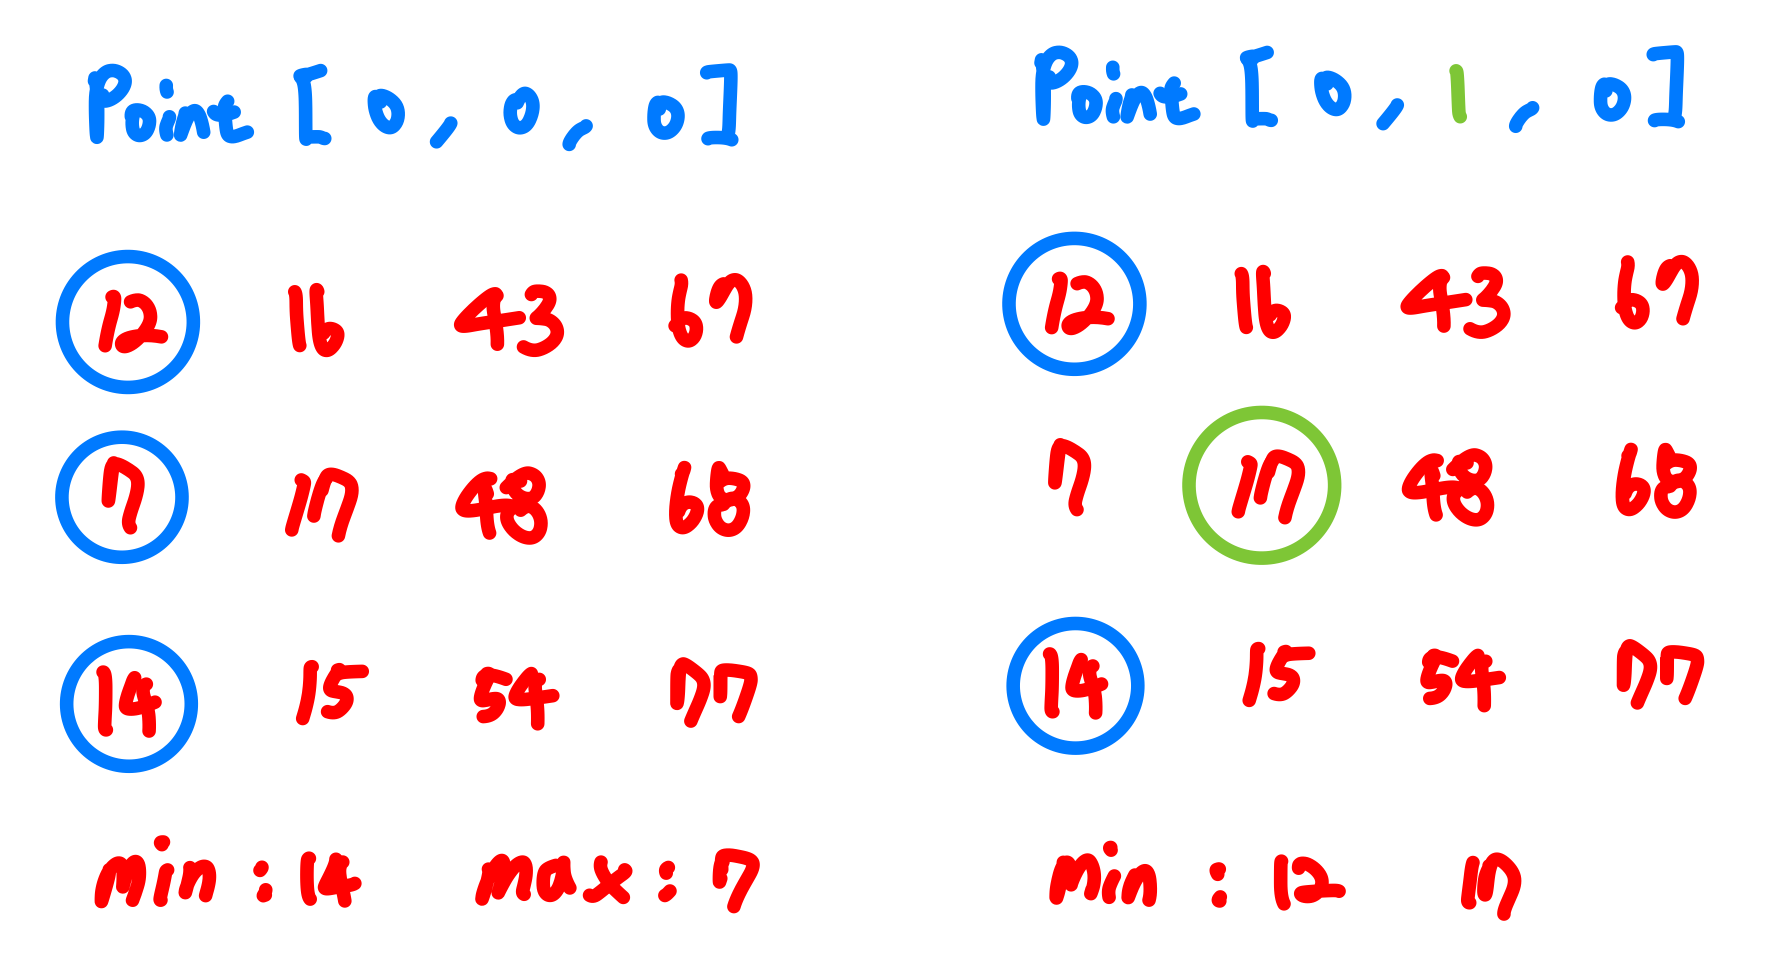 Point [ 0 , 0 , 0 ]
12 16 43 67
7 17 48 68
14 15 54 77
min : 14 max : 7
Point [ 0 , 1 , 0 ]
12 16 43 67
7 17 48 68
14 15 54 77
min : 12 17